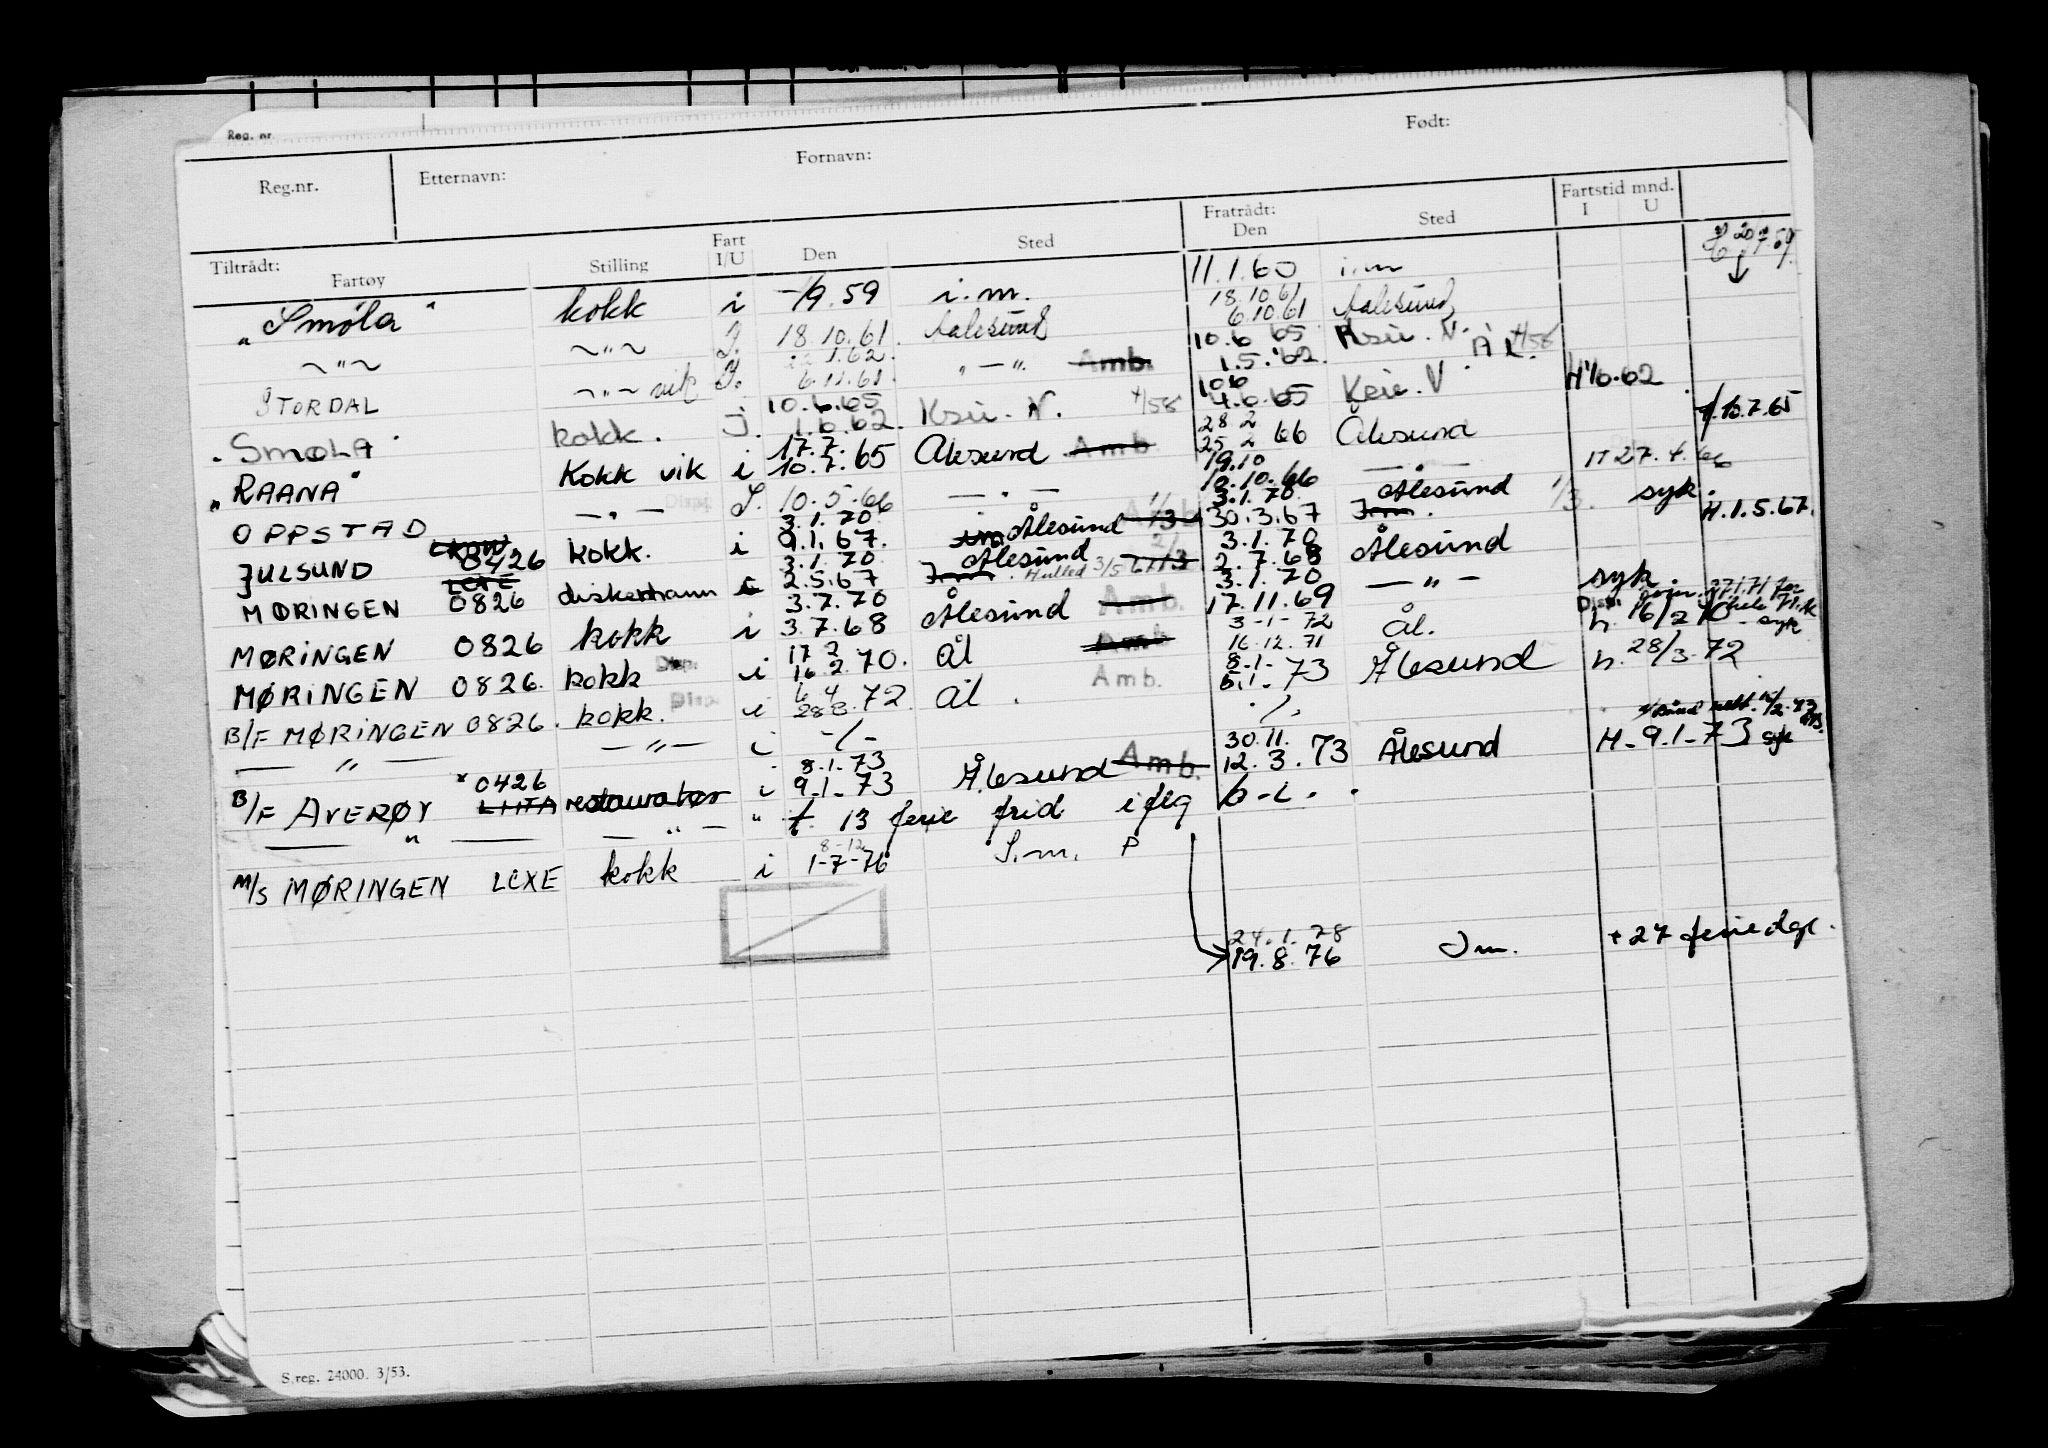 Reg. nr.
Reg.nr. Etternavn: Fornavn: Født:
Tiltrådt: Fratrådt: Fartstid mnd.
Fartøy Stilling Fart I/U Den Sted Den Sted I U
"Smöla" kokk i -/9.59 i.m. 11.1.60 i.m
18.10.61
~"~ ~"~ J. 18.10.61. Aalesund 6.10.61 Aalesund
1.62. 10.6 65 Ksu. N. 4/58
STORDAL ~"~ vik J. 6.11.61. "—". Amb. 1.5.'62. ÅL.
10.6.65 10.6
"SMØLA" kokk. J. 1.6.62. Ksu. N. 4/58 4.6.65 Ksu. N H 1/6.62
17.7. 28 2
"RAANA" Kokk vik i 10.7.65 Ålesund Amb. 25 2 66 Ålesund H.10.7.65
19.10
OPPSTAD —"— J. 10.5.66 —"— 10.10.66 — — H 27.4.66
3.1.70 3.1.70
JULSUND 0426 kokk. i 9.1.67. im Ålesund 1/3 30.3.67 Im. Ålesund 1/3. syk. H.1.5.67.
LCXE 3.1.70 Ålesund 3.1.70
MØRINGEN 0826 diskemann i 2.5.67 Im. Hulled 3/5 67 1/3 2.7.68 Ålesund
3.7.70 3.1.70
MØRINGEN 0826 kokk i 3.7.68 Ålesund Amb. 17.11.69 —"— syk.
17 2 3-1-72
MØRINGEN 0826. kokk Disp. i 16.2.70. Ål Amb. 16.12.71 Ål. h. 16/2 70 syk
6 4 8-1-
B/F MØRINGEN 0826. kokk. Disp. i 28 3.72 Ål. Amb. 5.1.73 Ålesund h. 28/3.72
—"— —"— i -/- ./.
8.1.73 30.11.
B/F AVERØY 0426 LMTA restauratør i 9.1.73 Ålesund Amb. 12.3.73 Ålesund H. 9.1.73 syk
—"— —"— " f. 13 ferie frid iflg b.i.
8-12
M/S MØRINGEN LCXE kokk i 1-7-76 I.m. P
24.1.78
19.8.76 Im. + 27 feriedgr.
S.reg. 24000. 3/53.